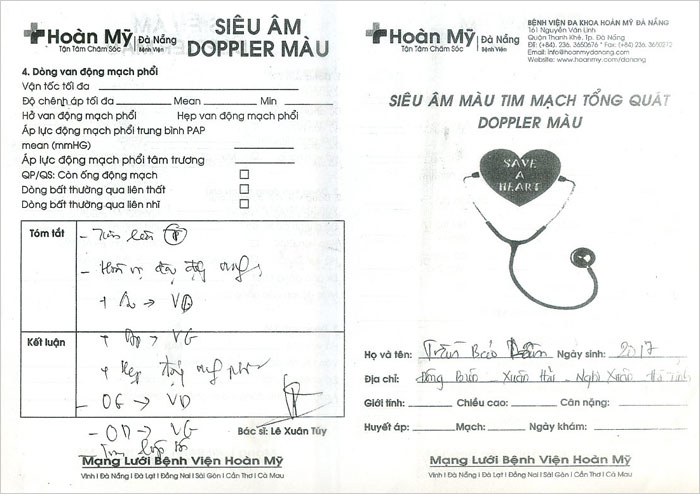 Hoàn Mỹ Đà Nẵng
Tận Tâm Chăm Sóc Bệnh Viện
SIÊU ÂM
DOPPLER MÀU
4. Dòng van động mạch phổi
Vận tốc tối đa
Độ chênh áp tối đa Mean Min
Hở van động mạch phổi Hẹp van động mạch phổi
Áp lực động mạch phổi trung bình PAP
mean (mmHG)
Áp lực động mạch phổi tâm trương
QP/QS: Còn ống động mạch
Dòng bất thường qua liên thất
Dòng bất thường qua liên nhĩ
Tóm tắt
+ → VD
Kết luận
+ → VG
+ Hẹp động mạch phổi
- OG → VD
- OD → VG
Bác sĩ: Lê Xuân Túy
Mạng Lưới Bệnh Viện Hoàn Mỹ
Vinh I Đà Nẵng I Đà Lạt I Đồng Nai I Sài Gòn I Cần Thơ I Cà Mau
Hoàn Mỹ Đà Nẵng
Tận Tâm Chăm Sóc Bệnh Viện
BỆNH VIỆN ĐA KHOA HOÀN MỸ ĐÀ NẴNG
161 Nguyễn Văn Linh
Quận Thanh Khê, Tp. Đà Nẵng
ĐT: (+84). 236. 3650676 * Fax: (+84). 236. 3650212
Email: info@hoanmydanang.com
Website: www.hoanmy.com/danang
SIÊU ÂM MÀU TIM MẠCH TỔNG QUÁT
DOPPLER MÀU
SAVE
A
HEART
Họ và tên: Trần Bảo Ngày sinh: 2017
Địa chỉ: Đông Biên - Xuân Hải - Nghi Xuân Hà Tĩnh
Giới tính: Chiều cao: Cân nặng:
Huyết áp: Mạch: Ngày khám:
Mạng Lưới Bệnh Viện Hoàn Mỹ
Vinh I Đà Nẵng I Đà Lạt I Đồng Nai I Sài Gòn I Cần Thơ I Cà Mau